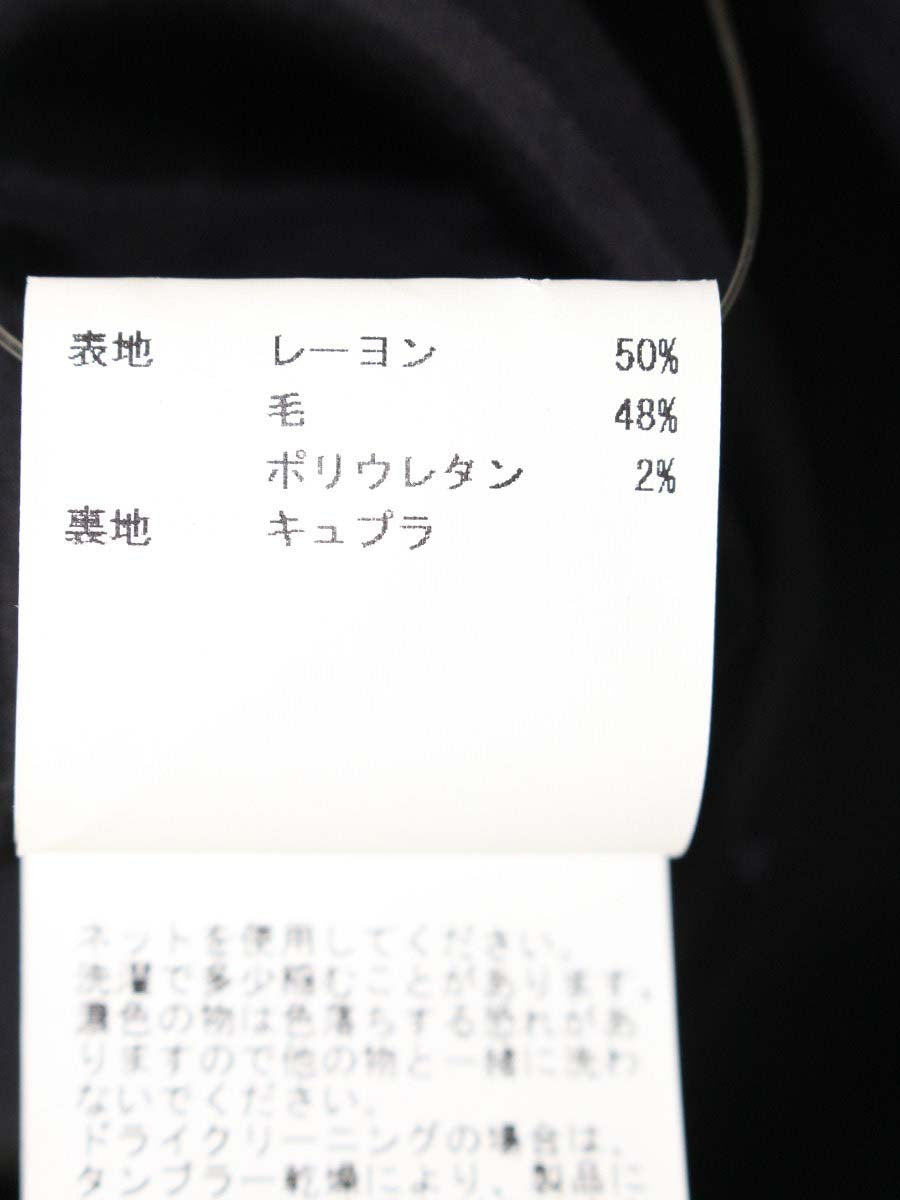 表地 レーヨン 50%
毛 48%
ポリウレタン 2%
裏地 キュプラ
ネットを使用してください。
洗濯で多少縮むことがあります。
濃色の物は色落ちする恐れがあ
りますので他の物と一緒に洗わ
ないでください。
ドライクリーニングの場合は、
タンブラー乾燥により、製品に